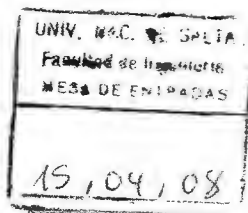 UNIV. NAC. DE SALTA
Facultad de Ingeniería
MESA DE ENTRADAS
15,04,08